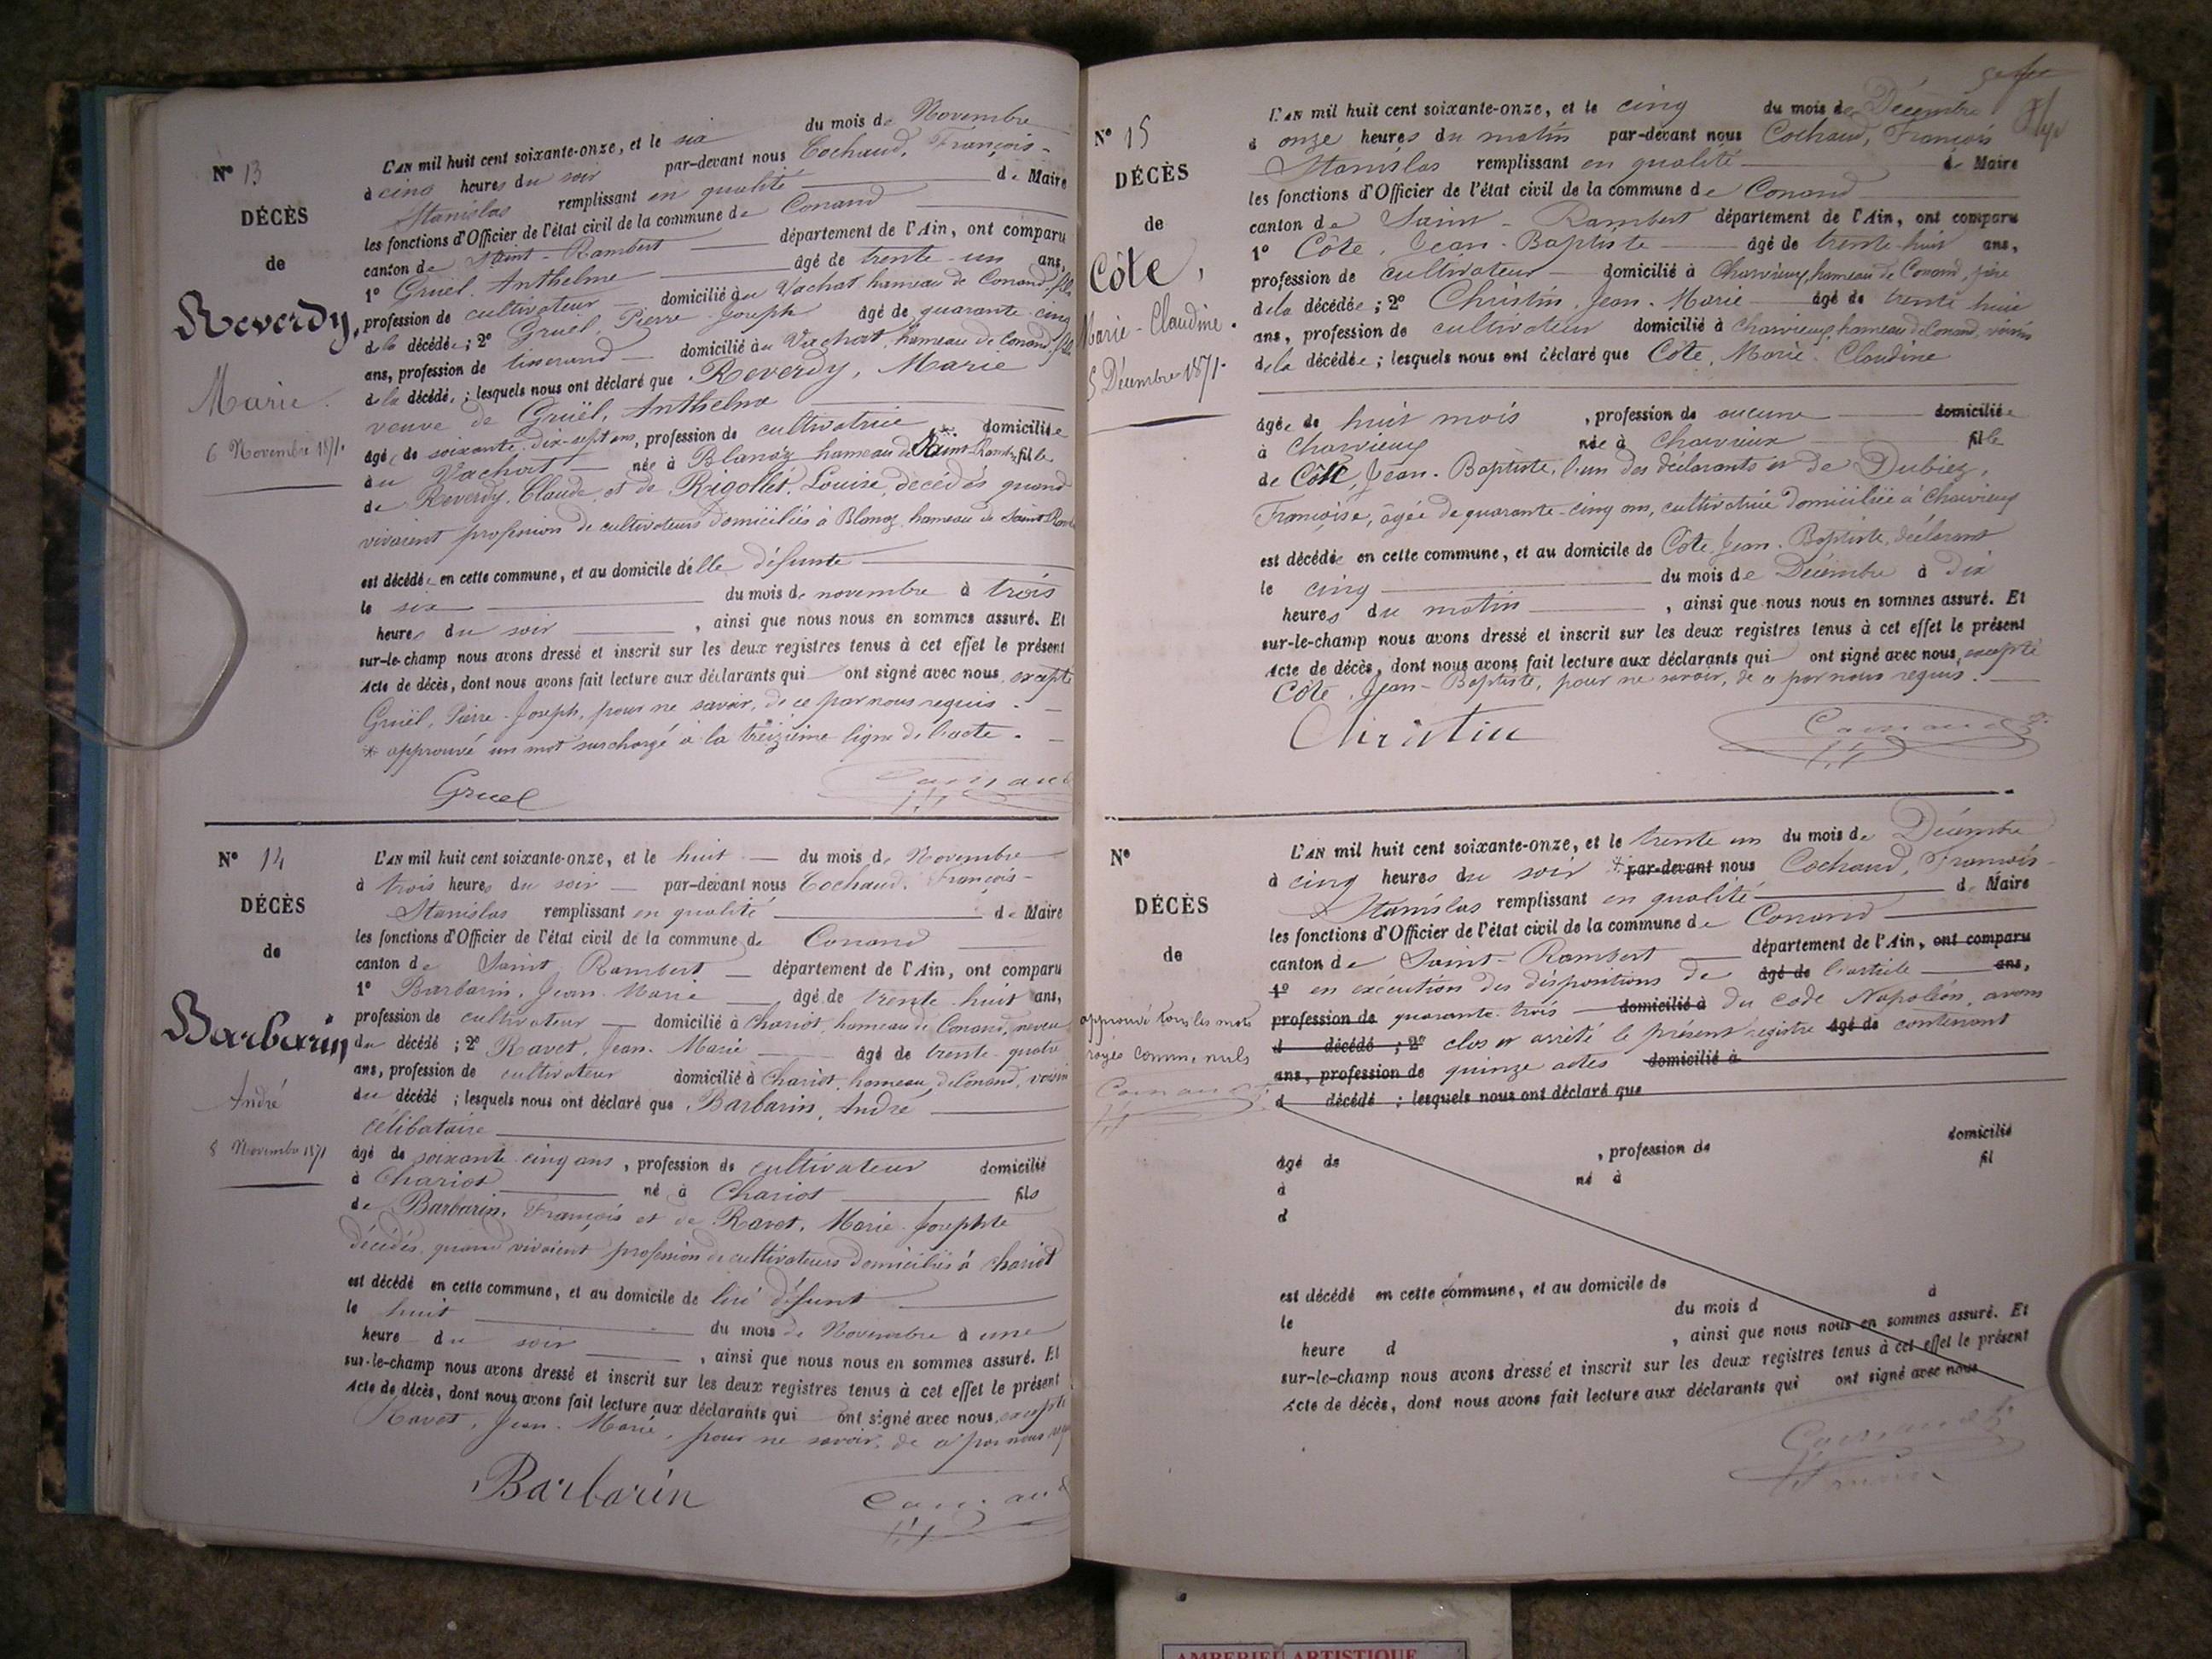 N° 13
DÉCÈS
de
Reverdy,
Marie.
6 Novembre 1871.
L'AN mil huit cent soixante-onze, et le six du mois de Novembre
à cinq heures du soir par-devant nous Cochaud, François-
Stanislas remplissant en qualité de Maire
les fonctions d'Officier de l'état civil de la commune de Conand
canton de Saint-Rambert département de l'Ain, ont comparu
1° Gruel, Anthelme âgé de trente-un ans,
profession de cultivateur domicilié au Vachat hameau de Conand, fils
de la décédée; 2° Gruël, Pierre-Joseph âgé de quarante-cinq
ans, profession de tisserand domicilié au Vachat, hameau de Conand, fils
de la décédé, ; lesquels nous ont déclaré que Reverdy, Marie
veuve de Gruël, Anthelme
âgée de soixante-dix-sept ans, profession de cultivatrice domiciliée
au Vachat née à Blanaz hameau de * Saint-Ramb. fille
de Reverdy, Claude, et de Rigollet, Louise, décédés quand
vivaient profession de cultivateurs domiciliés à Blanaz, hameau de Saint Ramb
est décédée en cette commune, et au domicile d'elle défunte
le six du mois de novembre à trois
heures du soir , ainsi que nous nous en sommes assuré. Et
sur-le-champ nous avons dressé et inscrit sur les deux registres tenus à cet effet le présent
Acte de décès, dont nous avons fait lecture aux déclarants qui ont signé avec nous, excepté
Gruël, Pierre-Joseph, pour ne savoir, de ce par nous requis.
* approuvé un mot surchargé à la treizième ligne de l'acte.
Gruel
N° 14
DÉCÈS
de
Barbarin
André
8 Novembre 1871
L'AN mil huit cent soixante-onze, et le huit du mois de Novembre
à trois heures du soir par-devant nous Cochaud, François-
Stanislas remplissant en qualité de Maire
les fonctions d'Officier de l'état civil de la commune de Conand
canton de Saint Rambert département de l'Ain, ont comparu
1° Barbarin, Jean-Marie âgé de trente-huit ans,
profession de cultivateur domicilié à Chariot, hameau de Conand, neveu
du décédé ; 2° Ravet, Jean-Marie âgé de trente-quatre
ans, profession de cultivateur domicilié à Chariot, hameau de Conand, voisin
du décédé ; lesquels nous ont déclaré que Barbarin, André
célibataire
âgé de soixante-cinq ans, profession de cultivateur domicilié
à Chariot né à Chariot fils
de Barbarin, François et de Ravet, Marie-Josephte
décédés, quand vivaient profession de cultivateurs domiciliés à Chariot
est décédé en cette commune, et au domicile de lui défunt
le huit du mois de Novembre à une
heure du soir , ainsi que nous nous en sommes assuré. Et
sur-le-champ nous avons dressé et inscrit sur les deux registres tenus à cet effet le présent
Acte de décès, dont nous avons fait lecture aux déclarants qui ont signé avec nous, excepté
Ravet, Jean-Marie, pour ne savoir, de ce par nous
Barbarin
N° 15
DÉCÈS
de
Côte,
Marie-Claudine.
5 Décembre 1871.
L'AN mil huit cent soixante-onze, et le cinq du mois de Décembre
à onze heures du matin par-devant nous Cochaud, François
Stanislas remplissant en qualité de Maire
les fonctions d'Officier de l'état civil de la commune de Conand
canton de Saint-Rambert département de l'Ain, ont comparu
1° Côte, Jean-Baptiste âgé de trente-huit ans,
profession de cultivateur domicilié à Charvieux, hameau de Conand, père
de la décédée ; 2° Christin, Jean-Marie âgé de trente huit
ans, profession de cultivateur domicilié à Charvieux, hameau de Conand, voisin
de la décédée ; lesquels nous ont déclaré que Côte, Marie-Claudine
âgée de huit mois , profession de aucune domiciliée
à Charvieux née à Charvieux fille
de Côte, Jean-Baptiste, l'un des déclarants et de Dubiez,
Françoise, âgée de quarante-cinq ans, cultivatrice domiciliée à Charvieux
est décédée en cette commune, et au domicile de Côte, Jean-Baptiste, déclarant
le cinq du mois de Décembre à dix
heures du matin , ainsi que nous nous en sommes assuré. Et
sur-le-champ nous avons dressé et inscrit sur les deux registres tenus à cet effet le présent
Acte de décès, dont nous avons fait lecture aux déclarants qui ont signé avec nous, excepté
Côte, Jean-Baptiste, pour ne savoir, de ce par nous requis.
Christin
N°
DÉCÈS
de
approuvé tous les mots
rayés comme nuls
L'AN mil huit cent soixante-onze, et le trente un du mois de Décembre
à cinq heures du soir * par-devant nous Cochaud, François-
Stanislas remplissant en qualité de Maire
les fonctions d'Officier de l'état civil de la commune de Conand
canton de Saint-Rambert département de l'Ain, ont comparu
1° en exécution des dispositions de âgé de l'article ans,
profession de quarante-trois domicilié à du code Napoléon, avons
d décédé ; 2° clos et arrêté le présent registre âgé de contenant
ans, profession de quinze actes domicilié à
d décédé ; lesquels nous ont déclaré que
âgé de , profession de domicilié
à né à fil
d
est décédé en cette commune, et au domicile de
le du mois d à
heure d , ainsi que nous nous en sommes assuré. Et
sur-le-champ nous avons dressé et inscrit sur les deux registres tenus à cet effet le présent
Acte de décès, dont nous avons fait lecture aux déclarants qui ont signé avec nous
AMBERIEU ARTISTIQUE